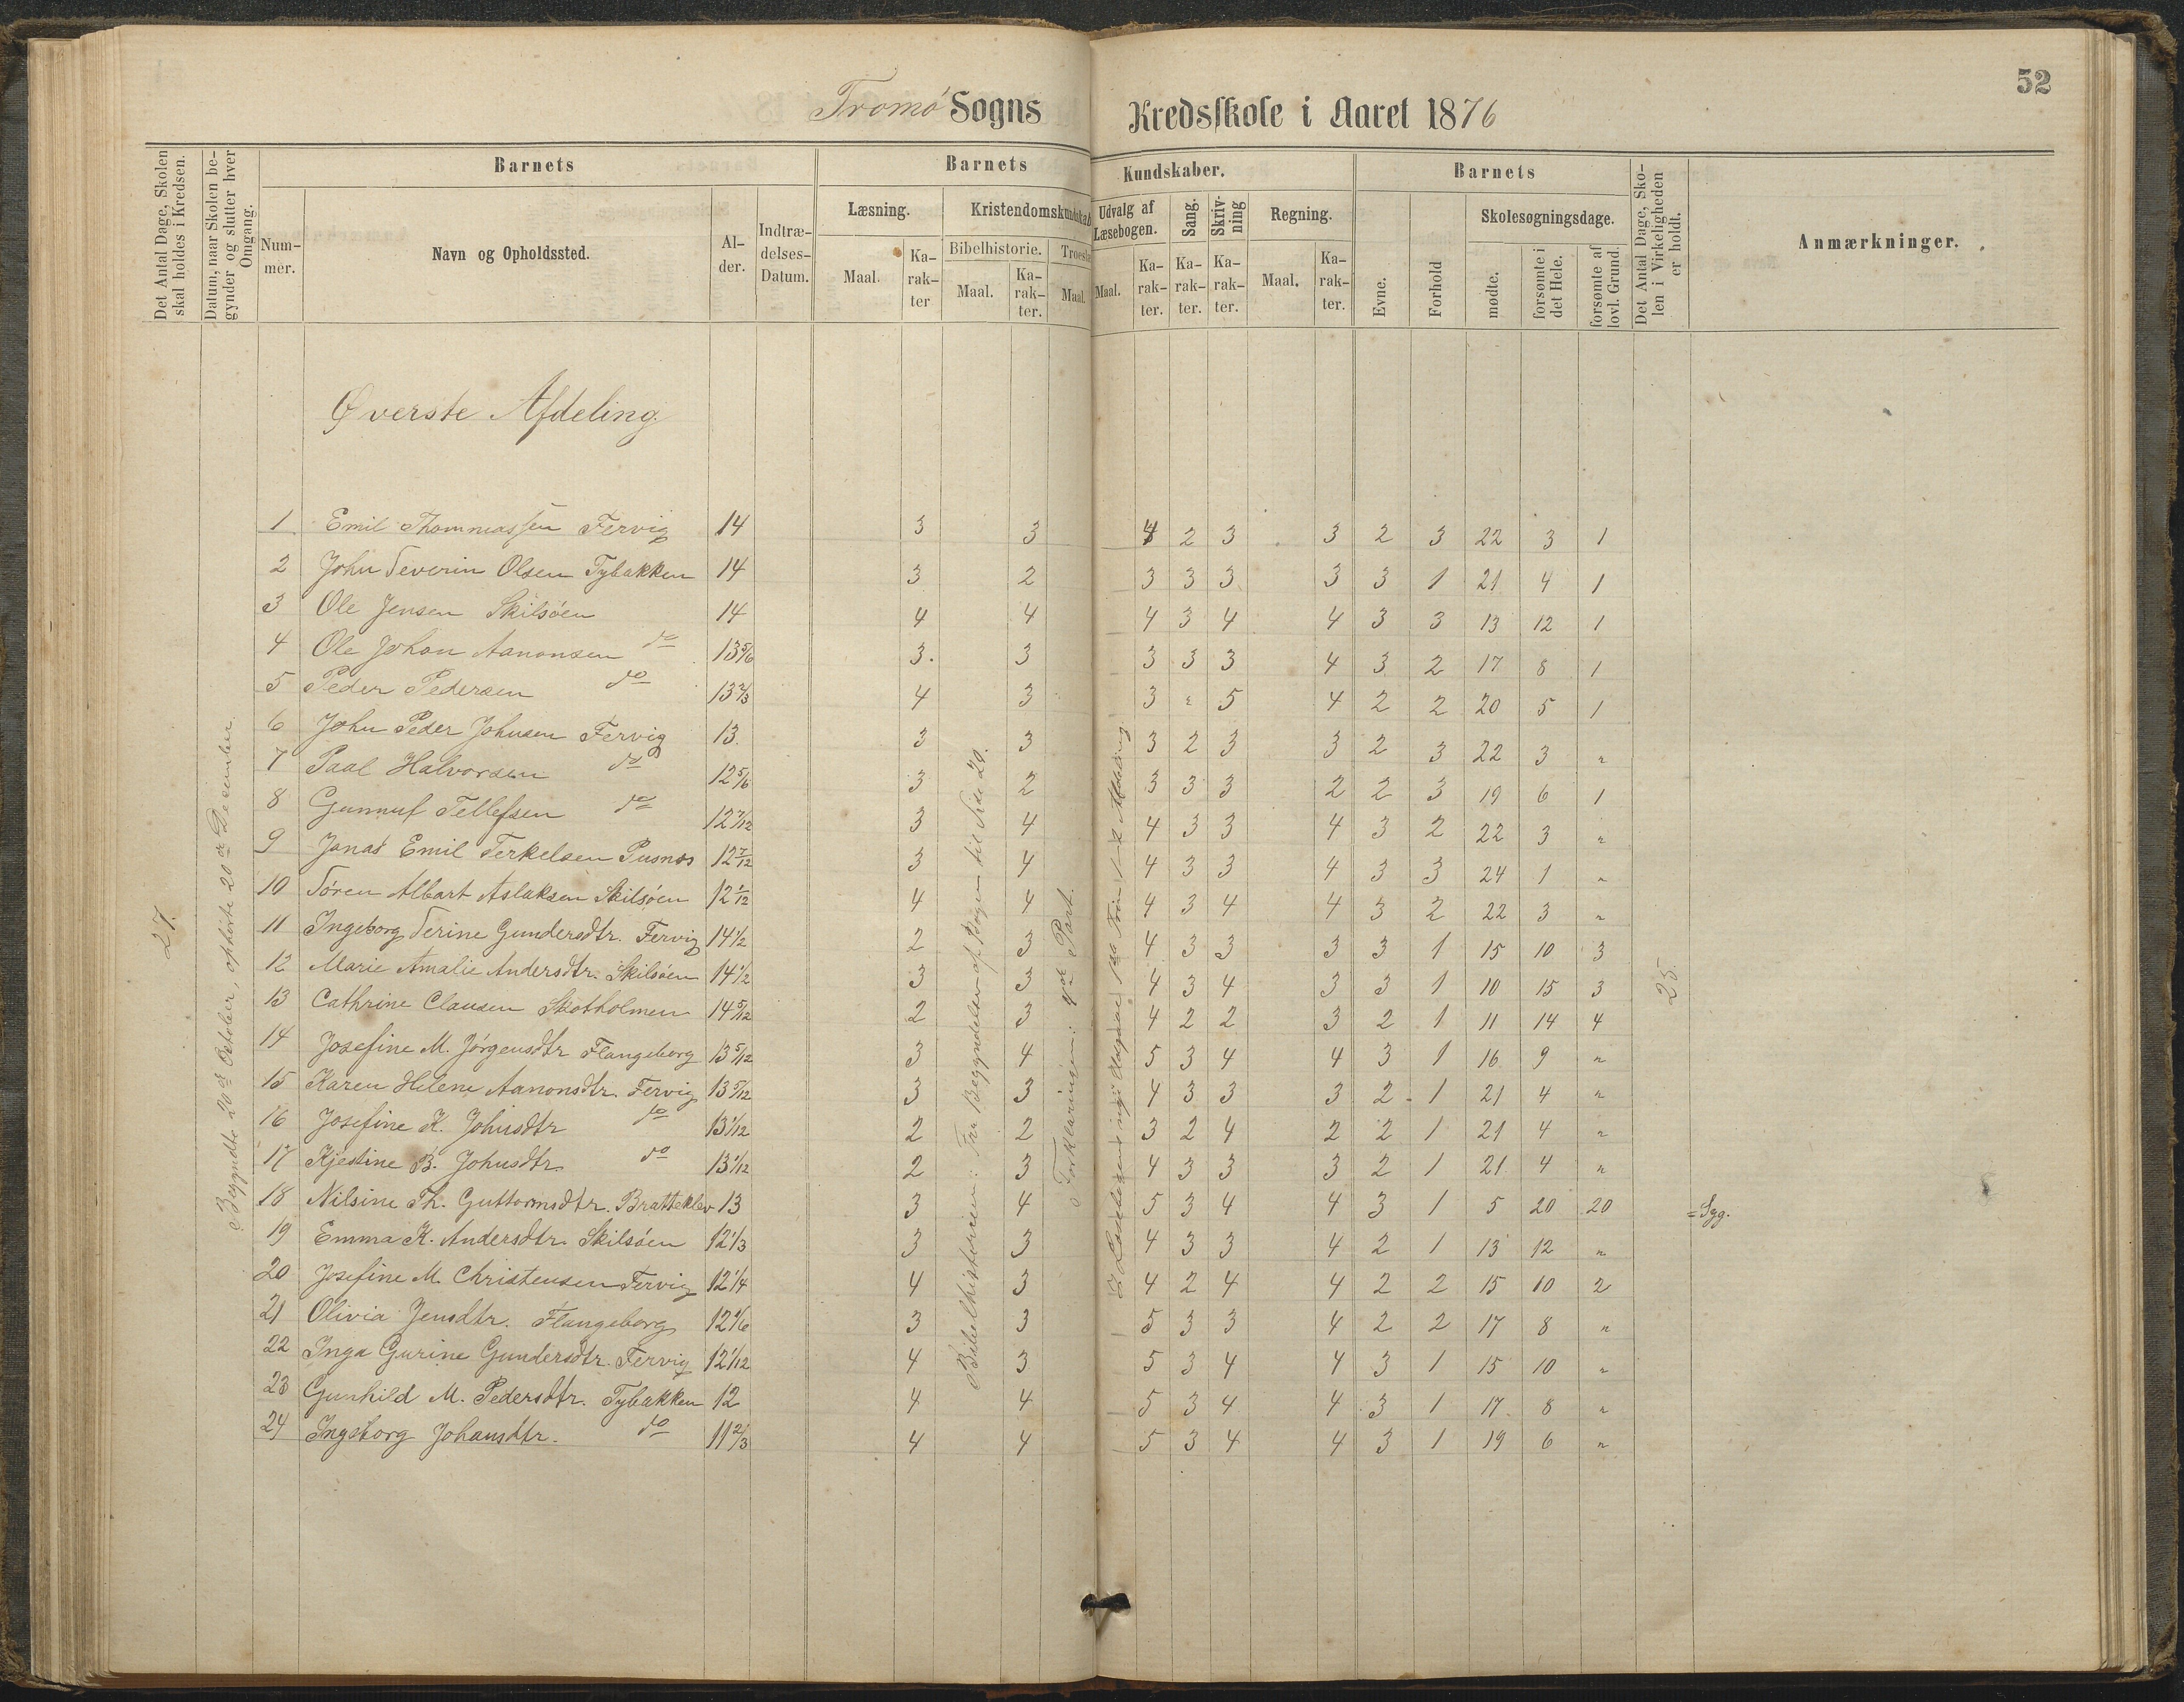 52
Tromø Sogns Kredsskole i Aaret 1876
Det Antal Dage, Skolen skal holdes i Kredsen.
Datum, naar Skolen begynder og slutter hver Omgang.
Barnets
Nummer.
Navn og Opholdssted.
Alder.
Indtrædelses-Datum.
Barnets Kundskaber.
Læsning.
Maal.
Karakter
Kristendomskundskab
Bibelhistorie.
Maal.
Karakter.
Troesl
Maal.
Udvalg af Læsebogen.
Maal.
Karakter.
Sang.
Karakter.
Skrivning
Karakter.
Regning.
Maal.
Karakter.
Barnets
Evne.
Forhold
Skolesøgningsdage.
mødte.
forsømte i det Hele.
forsømte af lovl. Grund.
Det Antal Dage, Skolen i Virkeligheden er holdt.
Anmærkninger.
Øverste Afdeling
27.
Begyndte 20de October, ophørte 20de December.
Bibelhistorien: Fra Begyndelsen af Bogen til Side 20.
Forklaringen: 4de Part.
25.
1 Emil Thommassen Fervig 14 3 3 4 2 3 3 2 3 22 3 1
2 John Severin Olsen Tybakken 14 3 2 3 3 3 3 3 1 21 4 1
3 Ole Jensen Skilsøen 14 4 4 4 3 4 4 3 3 13 12 1
4 Ole Johan Aanonsen do 13 5/6 3. 3 3 3 3 4 3 2 17 8 1
5 Peder Pedersen do 13 2/3 4 3 3 " 5 4 2 2 20 5 1
6 John Peder Johnsen Fervig 13. 3 3 3 2 3 3 2 3 22 3 "
7 Paal Halvorsen do 12 5/6 3 2 3 3 3 2 2 3 19 6 1
8 Gunnuf Tellefsen do 12 7/12 3 4 4 3 3 4 3 2 22 3 "
9 Jonas Emil Terkelsen Pusnes 12 7/12 3 4 4 3 3 4 3 3 24 1 "
10 Søren Albart Aslaksen Skilsøen 12 1/12 4 4 4 3 4 4 3 2 22 3 "
11 Ingeborg Serine Gundersdtr. Fervig 14 1/2 2 3 4 3 3 3 3 1 15 10 3
12 Marie Amalie Andersdtr. Skilsøen 14 1/2 3 3 4 3 4 3 3 1 10 15 3
13 Cathrine Clausen Skotholmen 14 5/12 2 3 4 2 2 3 2 1 11 14 4
14 Josefine M. Jørgensdtr Flangeborg 13 5/12 3 4 5 3 4 4 3 1 16 9 "
15 Karen Helene Aanonsdtr. Fervig 13 5/12 3 3 4 3 3 3 2 1 21 4 "
16 Josefine K. Johnsdtr do 13 1/12 2 2 3 2 4 2 2 1 21 4 "
17 Kjestine B. Johnsdtr. do 13 1/12 2 3 4 3 3 3 2 1 21 4 "
18 Nilsine Th. Guttormsdtr. Bratteklev 13 3 4 5 3 4 4 3 1 5 20 20 = Syg.
19 Emma K. Andersdtr. Skilsøen 12 1/3 3 3 4 3 3 4 2 1 13 12 "
20 Josefine M. Christensen Fervig 12 1/4 4 3 4 2 4 4 2 2 15 10 2
21 Olivia Jensdtr. Flangeborg 12 1/6 3 3 5 3 3 4 2 2 17 8 "
22 Inga Gurine Gundersdtr. Fervig 12 1/12 4 3 5 3 4 4 3 1 15 10 "
23 Gunhild M. Pedersdtr. Tybakken 12 4 4 5 3 4 4 3 1 17 8 "
24 Ingeborg Johansdtr. do 11 2/3 4 4 5 3 4 4 3 1 19 6 "